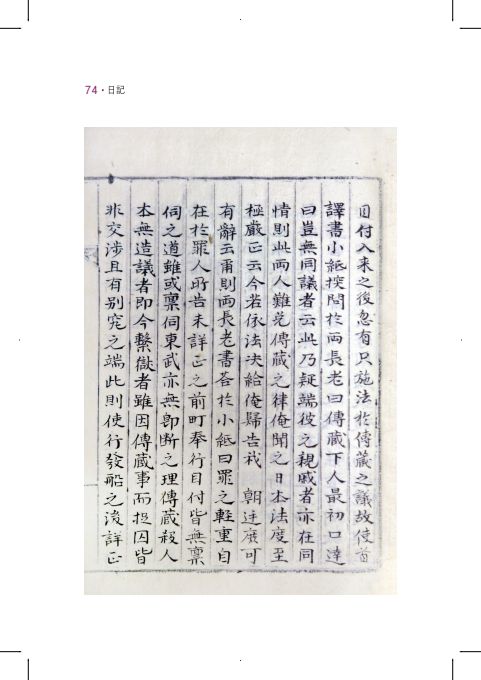 74 • 日記
目付入来之後忽有只施法於傳藏之議故使首
譯書小紙探問於兩長老曰傳藏下人最初口達
曰豈無同議者云此乃疑端彼之親戚者亦在同
情則此兩人難免傳藏之律俺聞之日本法度至
極嚴正云今若依法決給俺歸告我 朝廷庶可
有辭云爾則兩長老書荅於小紙曰罪之軽重自
在於罪人所告未詳正之前町奉行目付皆無禀
伺之道雖或禀伺東武亦無卽斷之理傳藏殺人
本無造議者即今繫獄者雖因傳藏事而捉囚皆
非交涉且有别究之端此則使行發船之後詳正